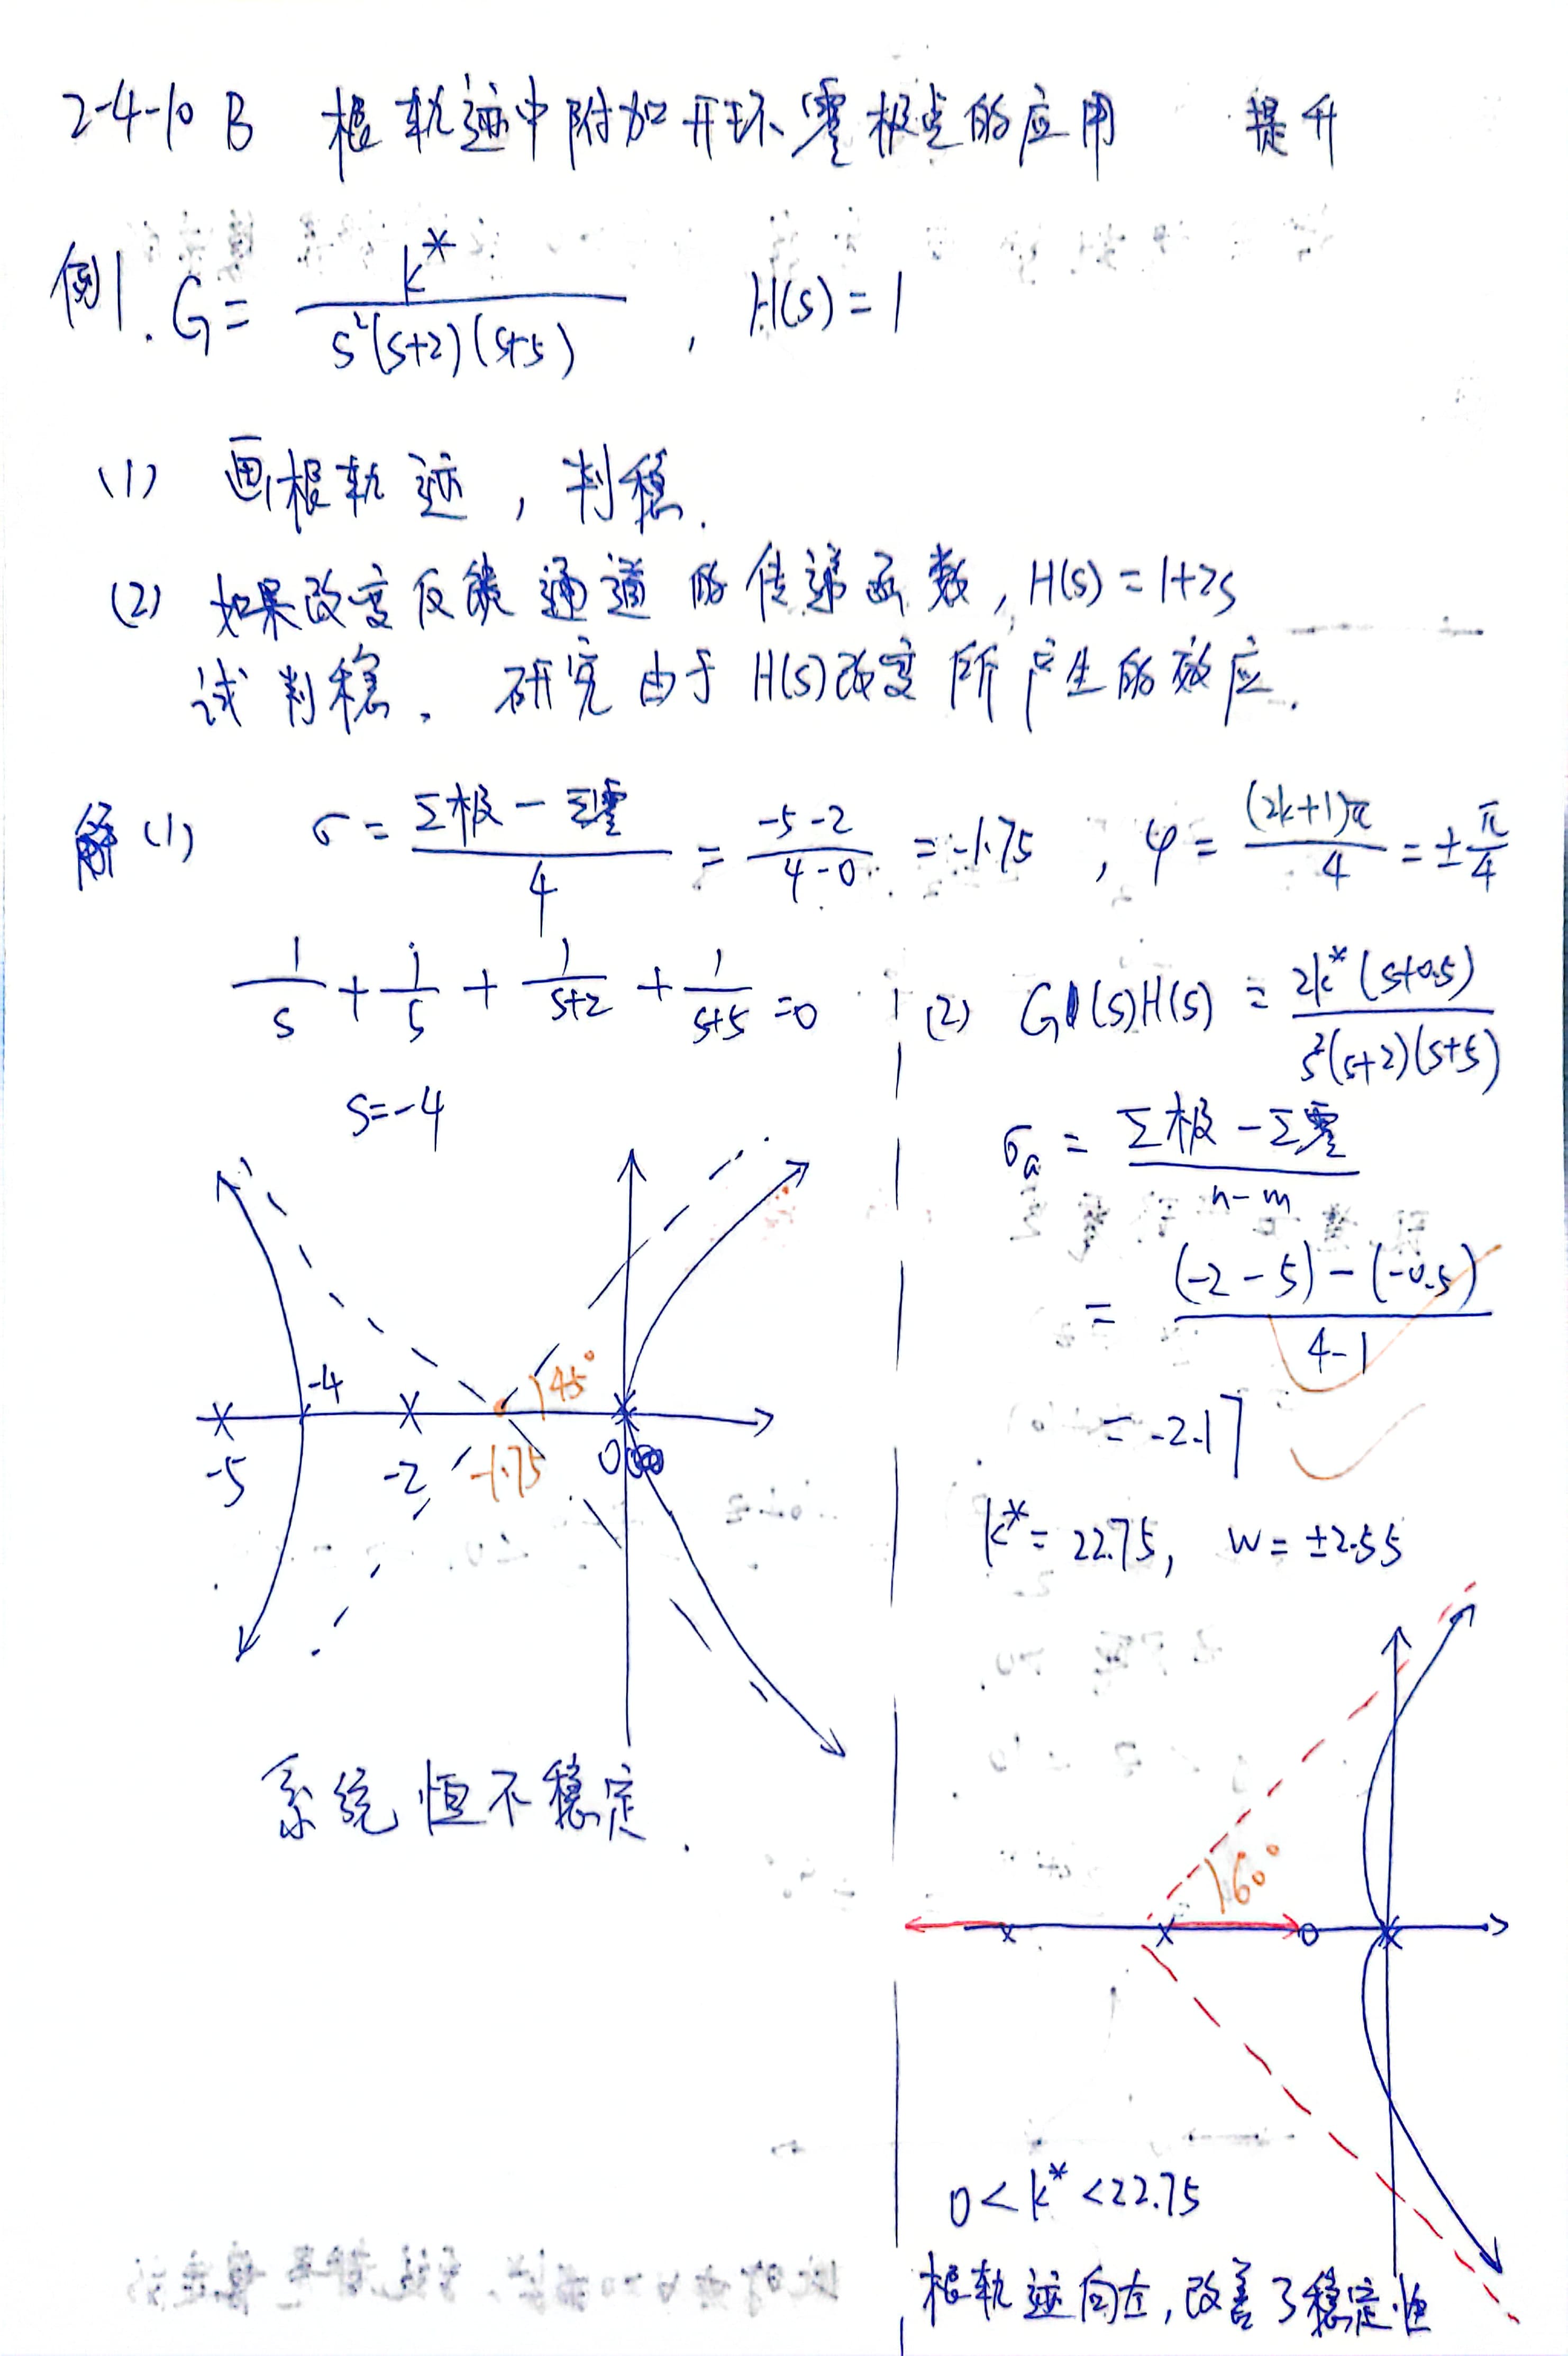 2-4-10 B 根轨迹中附加开环零极点的应用 提升
例1. G = k* / s²(s+2)(s+5) , H(s) = 1
(1) 画根轨迹，判稳.
(2) 如果改变反馈通道的传递函数, H(s) = 1+2s
试判稳. 研究由于H(s)改变所产生的效应.
解(1) σ = (Σ极 - Σ零) / 4 = (-5-2) / (4-0) = -1.75 , φ = (2k+1)π / 4 = ±π/4
1/s + 1/s + 1/(s+2) + 1/(s+5) = 0
s=-4
-4
45°
-5
-2
-1.75
0
系统恒不稳定.
(2) G(s)H(s) = 2k*(s+0.5) / s²(s+2)(s+5)
σa = (Σ极 - Σ零) / (n-m)
= ((-2-5) - (-0.5)) / (4-1)
= -2.17
k* = 22.75, w = ±2.55
60°
0 < k* < 22.75
根轨迹向左, 改善了稳定性